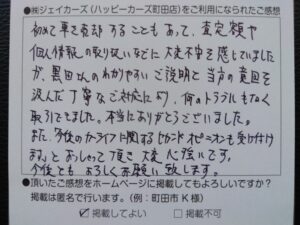 ●㈱ジェイカーズ（ハッピーカーズ町田店）をご利用になられたご感想
初めて車を売却することもあって、査定額や
個人情報の取り扱いなどに大変不安を感じていました
が、黒田さんのわかりやすいご説明と当方の意図を
汲んだ丁寧なご対応により、何のトラブルもなく
取引できました。本当にありがとうございました。
また、今後のカーライフに関するセカンドオピニオンも受け付け
ます。とおっしゃって頂き大変心強いです。
今後ともよろしくお願い致します。
●頂いたご感想をホームページに掲載してもよろしいですか？
掲載は匿名で行います。（例：町田市 K様）
☑掲載してよい　□掲載不可